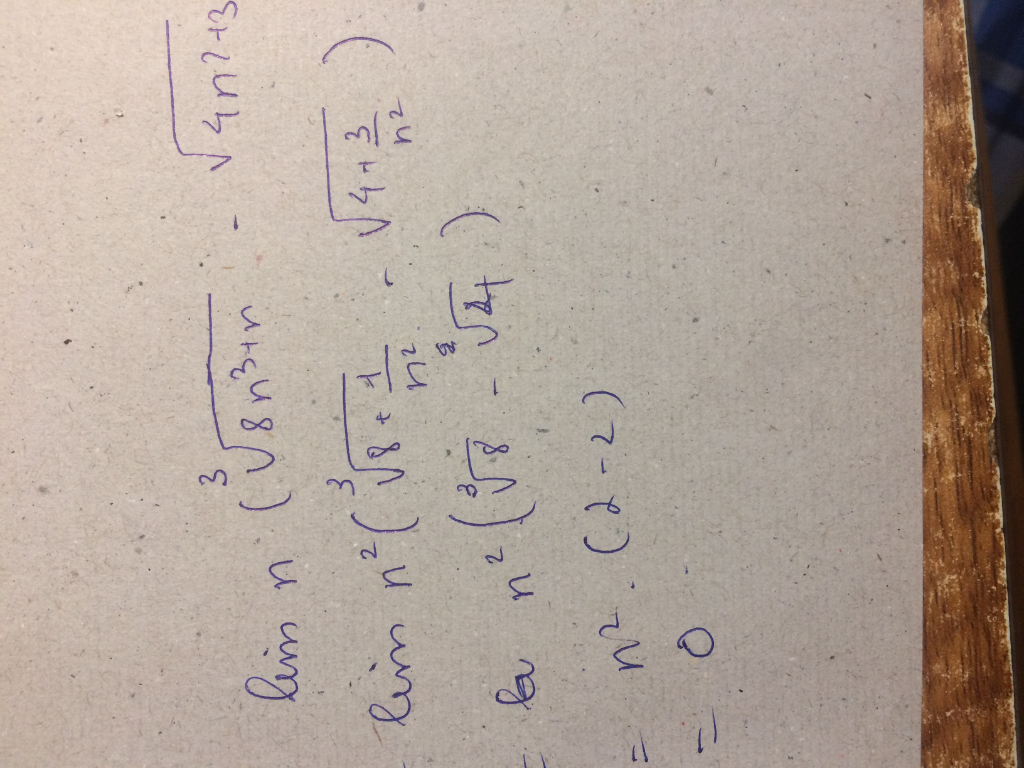 lim n (∛(8n³+n) - √(4n²+3
lim n² (∛(8+1/n²) - √(4+3/n²))
= n² (∛8 - ²√4)
= n² · (2-2)
= 0